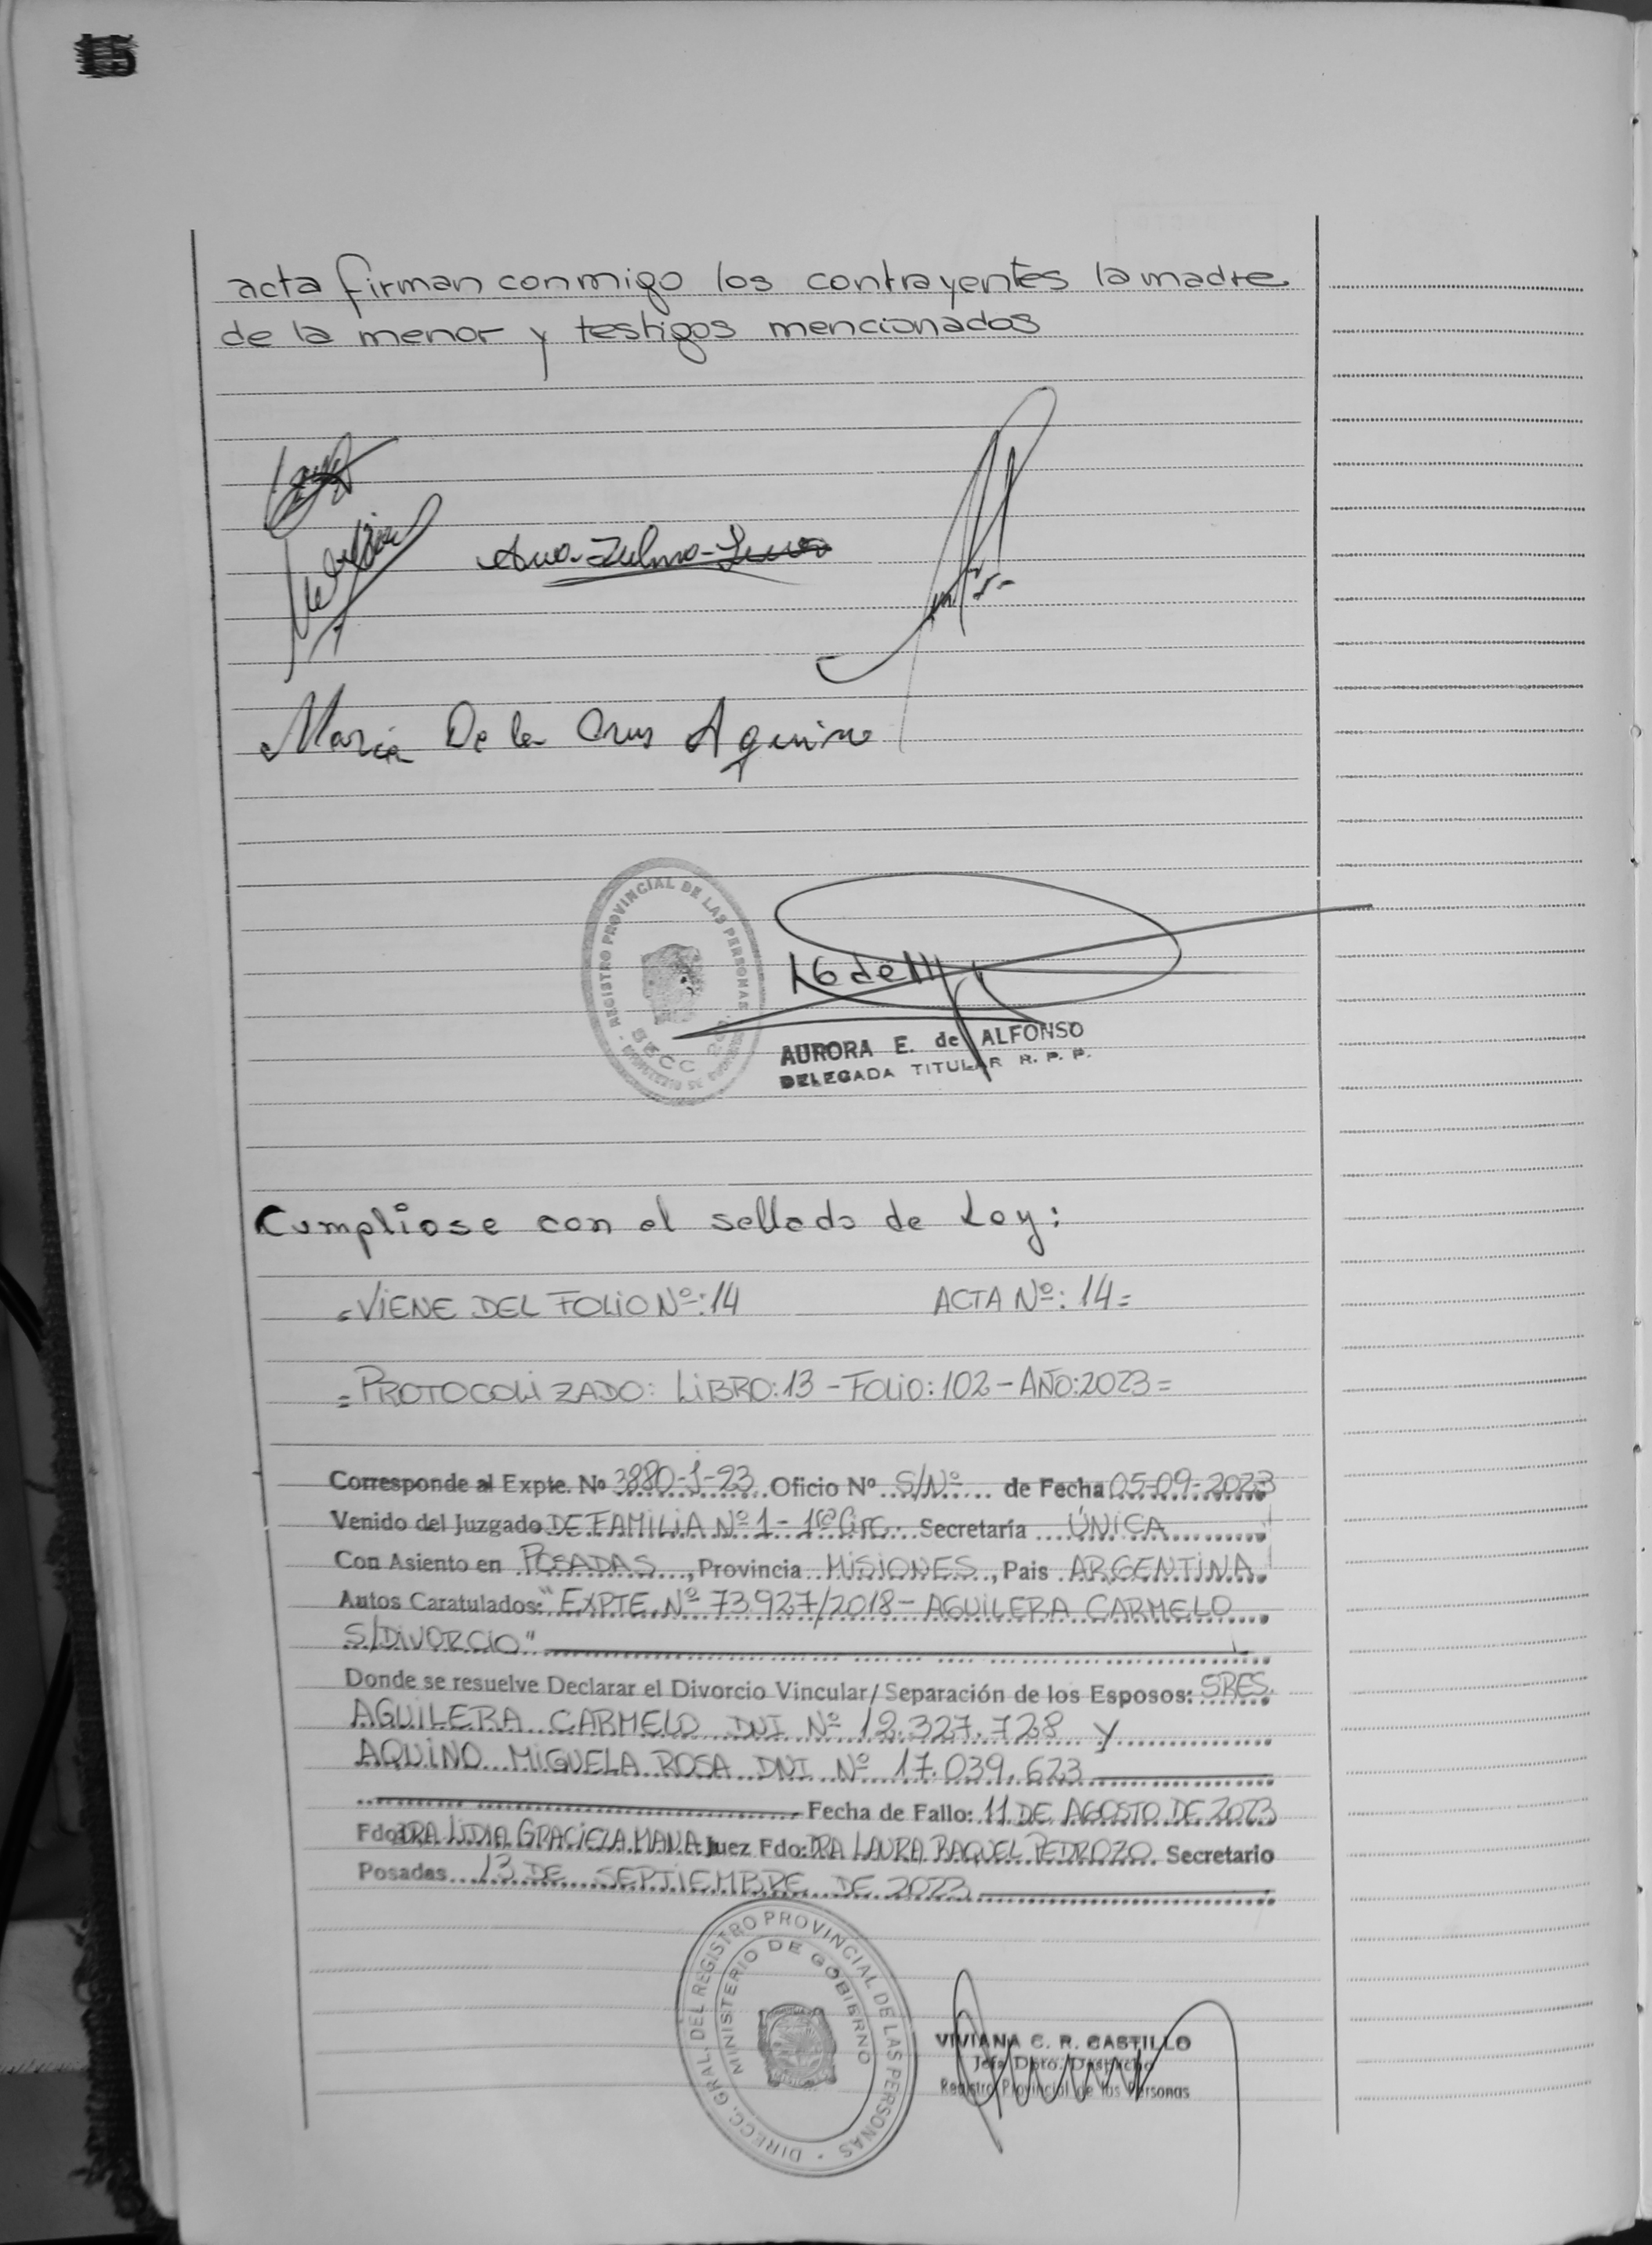 15
acta firman conmigo los contrayentes la madre
de la menor y testigos mencionados
Ana Zulma
Maria De la Crus Aquino
REGISTRO PROVINCIAL DE LAS PERSONAS
SECC
AURORA E. de ALFONSO
DELEGADA TITULAR R. P. P.
Cumpliose con el sellado de Ley:
=VIENE DEL FOLIO Nº:14 ACTA Nº: 14=
=PROTOCOLIZADO: LIBRO:13-FOLIO:102-AÑO:2023=
Corresponde al Expte. Nº 3880-J-23 Oficio Nº S/Nº de Fecha 05-09-2023
Venido del Juzgado DE FAMILIA Nº1-1ra Circ. Secretaría ÚNICA
Con Asiento en POSADAS, Provincia MISIONES, Pais ARGENTINA
Autos Caratulados: "EXPTE. Nº 73927/2018- AGUILERA CARMELO
S/DIVORCIO"
Donde se resuelve Declarar el Divorcio Vincular/Separación de los Esposos: SRES.
AGUILERA CARMELO DNI Nº 12.327.728 y
AQUINO MIGUELA ROSA DNI Nº 17.039.623
Fecha de Fallo: 11 DE AGOSTO DE 2023
Fdo: DRA LIDIA GRACIELA MANA Juez Fdo: DRA LAURA RAQUEL PEDROZO Secretario
Posadas 13 DE SEPTIEMBRE DE 2023
DIRECC. GRAL. DEL REGISTRO PROVINCIAL DE LAS PERSONAS
MINISTERIO DE GOBIERNO
VIVIANA C. R. CASTILLO
Jefa Dpto. Despacho
Registro Provincial de las Personas